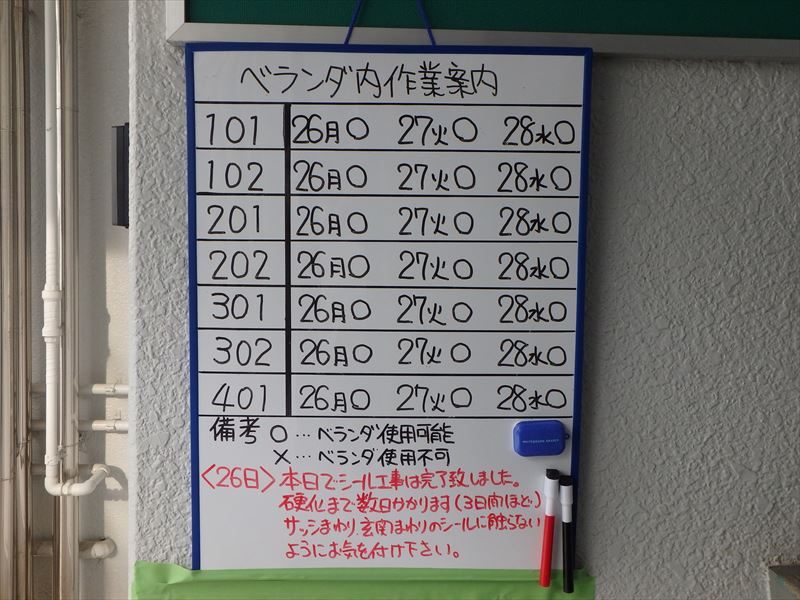 ベランダ内作業案内
101 26月○ 27火○ 28水○
102 26月○ 27火○ 28水○
201 26月○ 27火○ 28水○
202 26月○ 27火○ 28水○
301 26月○ 27火○ 28水○
302 26月○ 27火○ 28水○
401 26月○ 27火○ 28水○
備考 ○…ベランダ使用可能
×…ベランダ使用不可
〈26日〉本日でシール工事は完了致しました。
硬化まで数日かかります(3日間ほど)
サッシまわり、玄関まわりのシールに触らない
ようにお気を付け下さい。